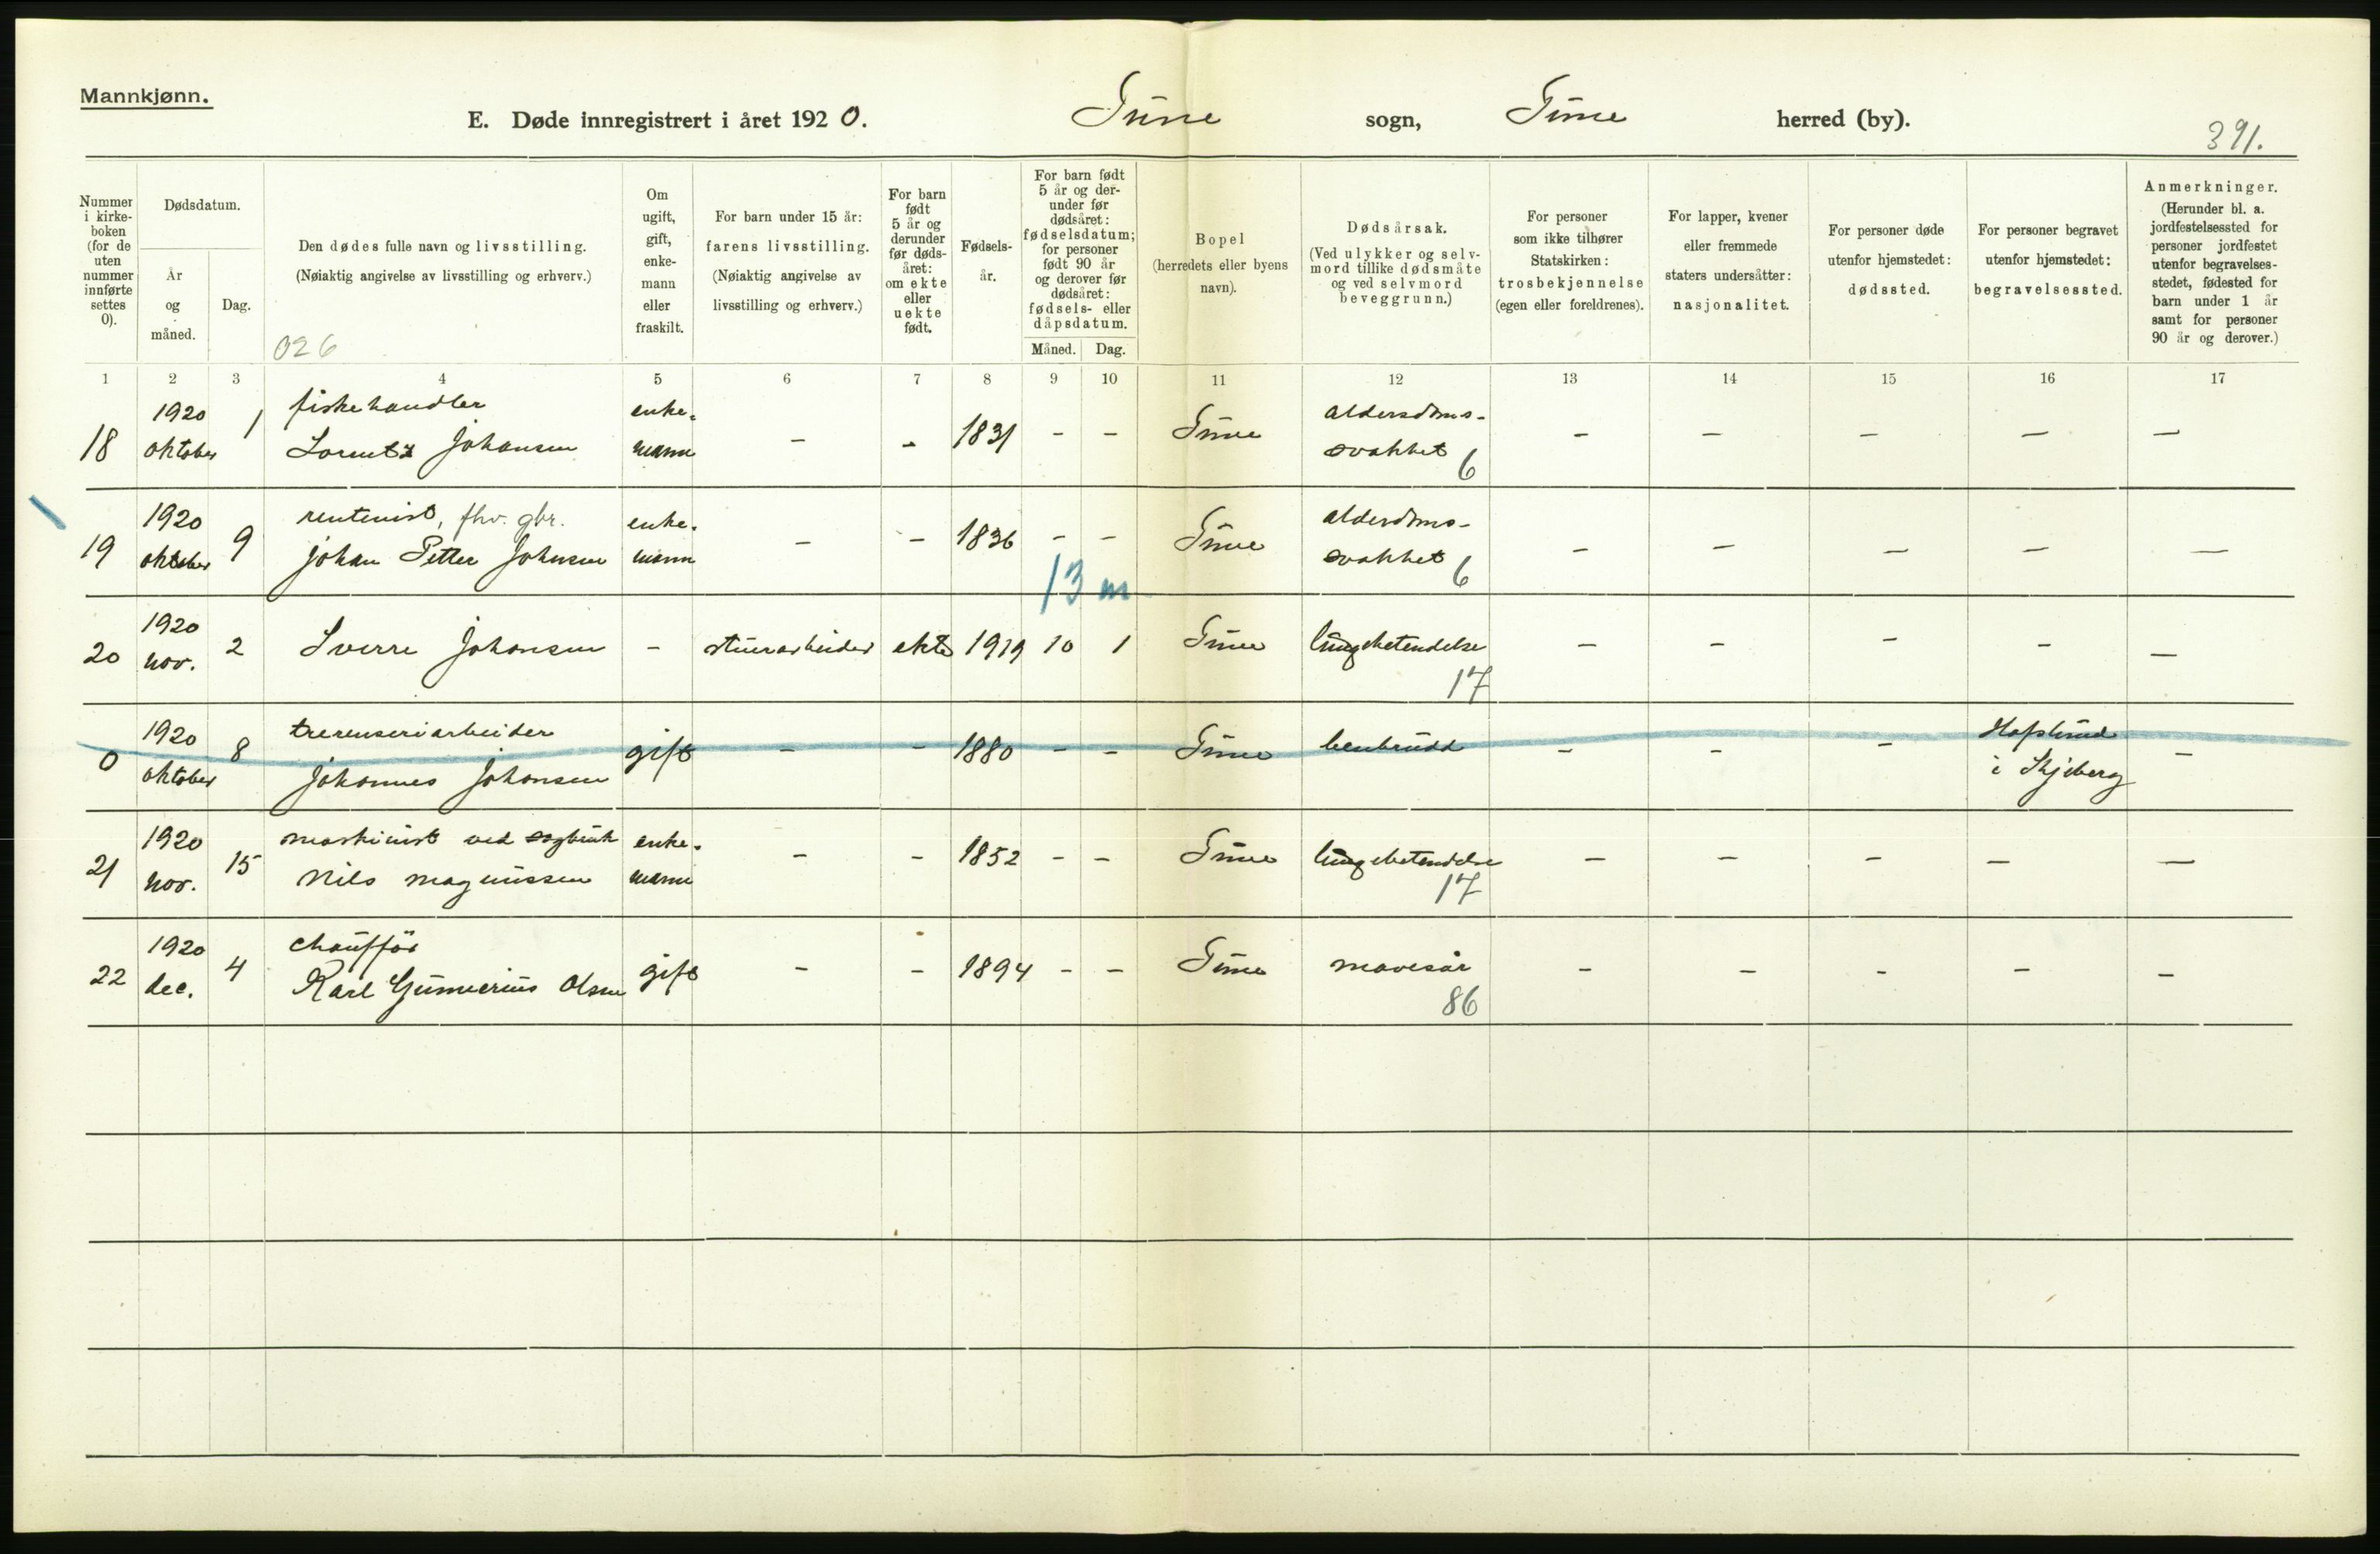 Mannkjønn.
E. Døde innregistrert i året 1920. Tune sogn, Tune herred (by).
391.
Nummer
i kirke-
boken
(for de
uten
nummer
innførte
settes
0).
Dødsdatum.
År
og
måned.
Dag.
Den dødes fulle navn og livsstilling.
(Nøiaktig angivelse av livsstilling og erhverv.)
026
Om
ugift,
gift,
enke-
mann
eller
fraskilt.
For barn under 15 år:
farens livsstilling.
(Nøiaktig angivelse av
livsstilling og erhverv.)
For barn
født
5 år og
derunder
før døds-
året:
om ekte
eller
uekte
født.
Fødsels-
år.
For barn født
5 år og der-
under før
dødsåret:
fødselsdatum;
for personer
født 90 år
og derover før
dødsåret:
fødsels- eller
dåpsdatum.
Måned.
Dag.
Bopel
(herredets eller byens
navn).
Dødsårsak.
(Ved ulykker og selv-
mord tillike dødsmåte
og ved selvmord
beveggrunn.)
For personer
som ikke tilhører
Statskirken:
trosbekjennelse
(egen eller foreldrenes).
For lapper, kvener
eller fremmede
staters undersåtter:
nasjonalitet.
For personer døde
utenfor hjemstedet:
dødssted.
For personer begravet
utenfor hjemstedet:
begravelsessted.
Anmerkninger.
(Herunder bl. a.
jordfestelsessted for
personer jordfestet
utenfor begravelses-
stedet, fødested for
barn under 1 år
samt for personer
90 år og derover.)
1 2 3 4 5 6 7 8 9 10 11 12 13 14 15 16 17
1920 1 fiskehandler enke- aldersdoms-
18 oktober Lorentz Johansen mann - - 1831 - - Tune svakhet - - - - -
6
1920 rentenist, fhv. gbr. enke- alderdoms-
19 oktober 9 Johan Petter Johnsen mann - - 1836 - - Tune svakhet - - - - -
6
13 m
1920
20 nov. 2 Sverre Johansen - stuerarbeider ekte 1919 10 1 Tune lungebetendelse - - - - -
17
1920 trerenseriarbeider Hafslund
0 oktober 8 Johannes Johansen gift - - 1880 - - Tune benbrudd - - - i Skjeberg -
1920 maskinist ved sagbruk enke-
21 nov. 15 Nils Magnussen mann - - 1852 - - Tune lungebetendelse - - - - -
17
1920 chaufför
22 dec. 4 Karl Gunnerius Olsen gift - - 1894 - - Tune mavesår - - - - -
86